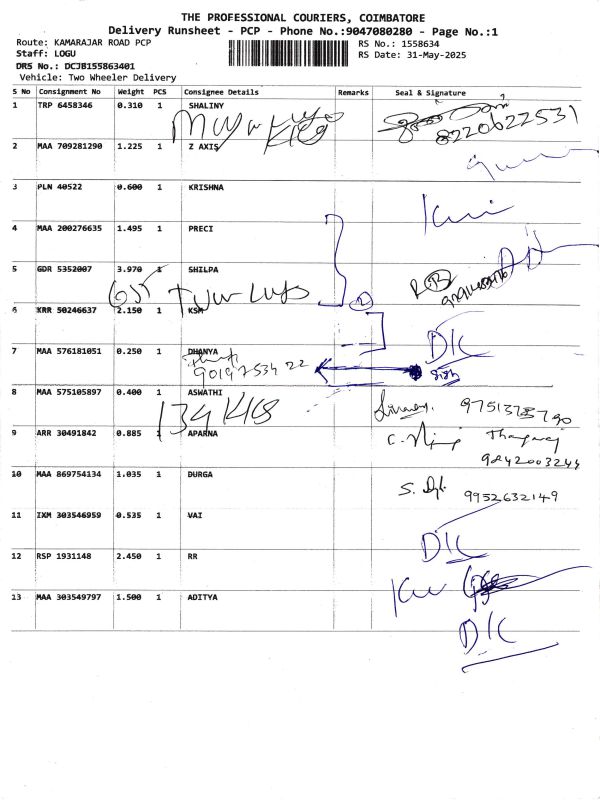 THE PROFESSIONAL COURIERS, COIMBATORE
Delivery Runsheet - PCP - Phone No.:9047080280 - Page No.:1
Route: KAMARAJAR ROAD PCP
Staff: LOGU
DRS No.: DCJB155863401
Vehicle: Two Wheeler Delivery
RS No.: 1558634
RS Date: 31-May-2025
S No Consignment No Weight PCS Consignee Details Remarks Seal & Signature
1 TRP 6458346 0.310 1 SHALINY
8220622531
2 MAA 709281290 1.225 1 Z AXIS
3 PLN 40522 0.600 1 KRISHNA
4 MAA 200276635 1.495 1 PRECI
5 GDR 5352007 3.970 1 SHILPA
6 KRR 50246637 2.150 1 KSM
DIC
7 MAA 576181051 0.250 1 DHANYA
9019753422
8 MAA 575105897 0.400 1 ASWATHI
9 ARR 30491842 0.885 1 APARNA
Thangaraj
9842003244
10 MAA 869754134 1.035 1 DURGA
9952632149
11 IXM 303546959 0.535 1 VAI
DIC
12 RSP 1931148 2.450 1 RR
13 MAA 303549797 1.500 1 ADITYA
DIC